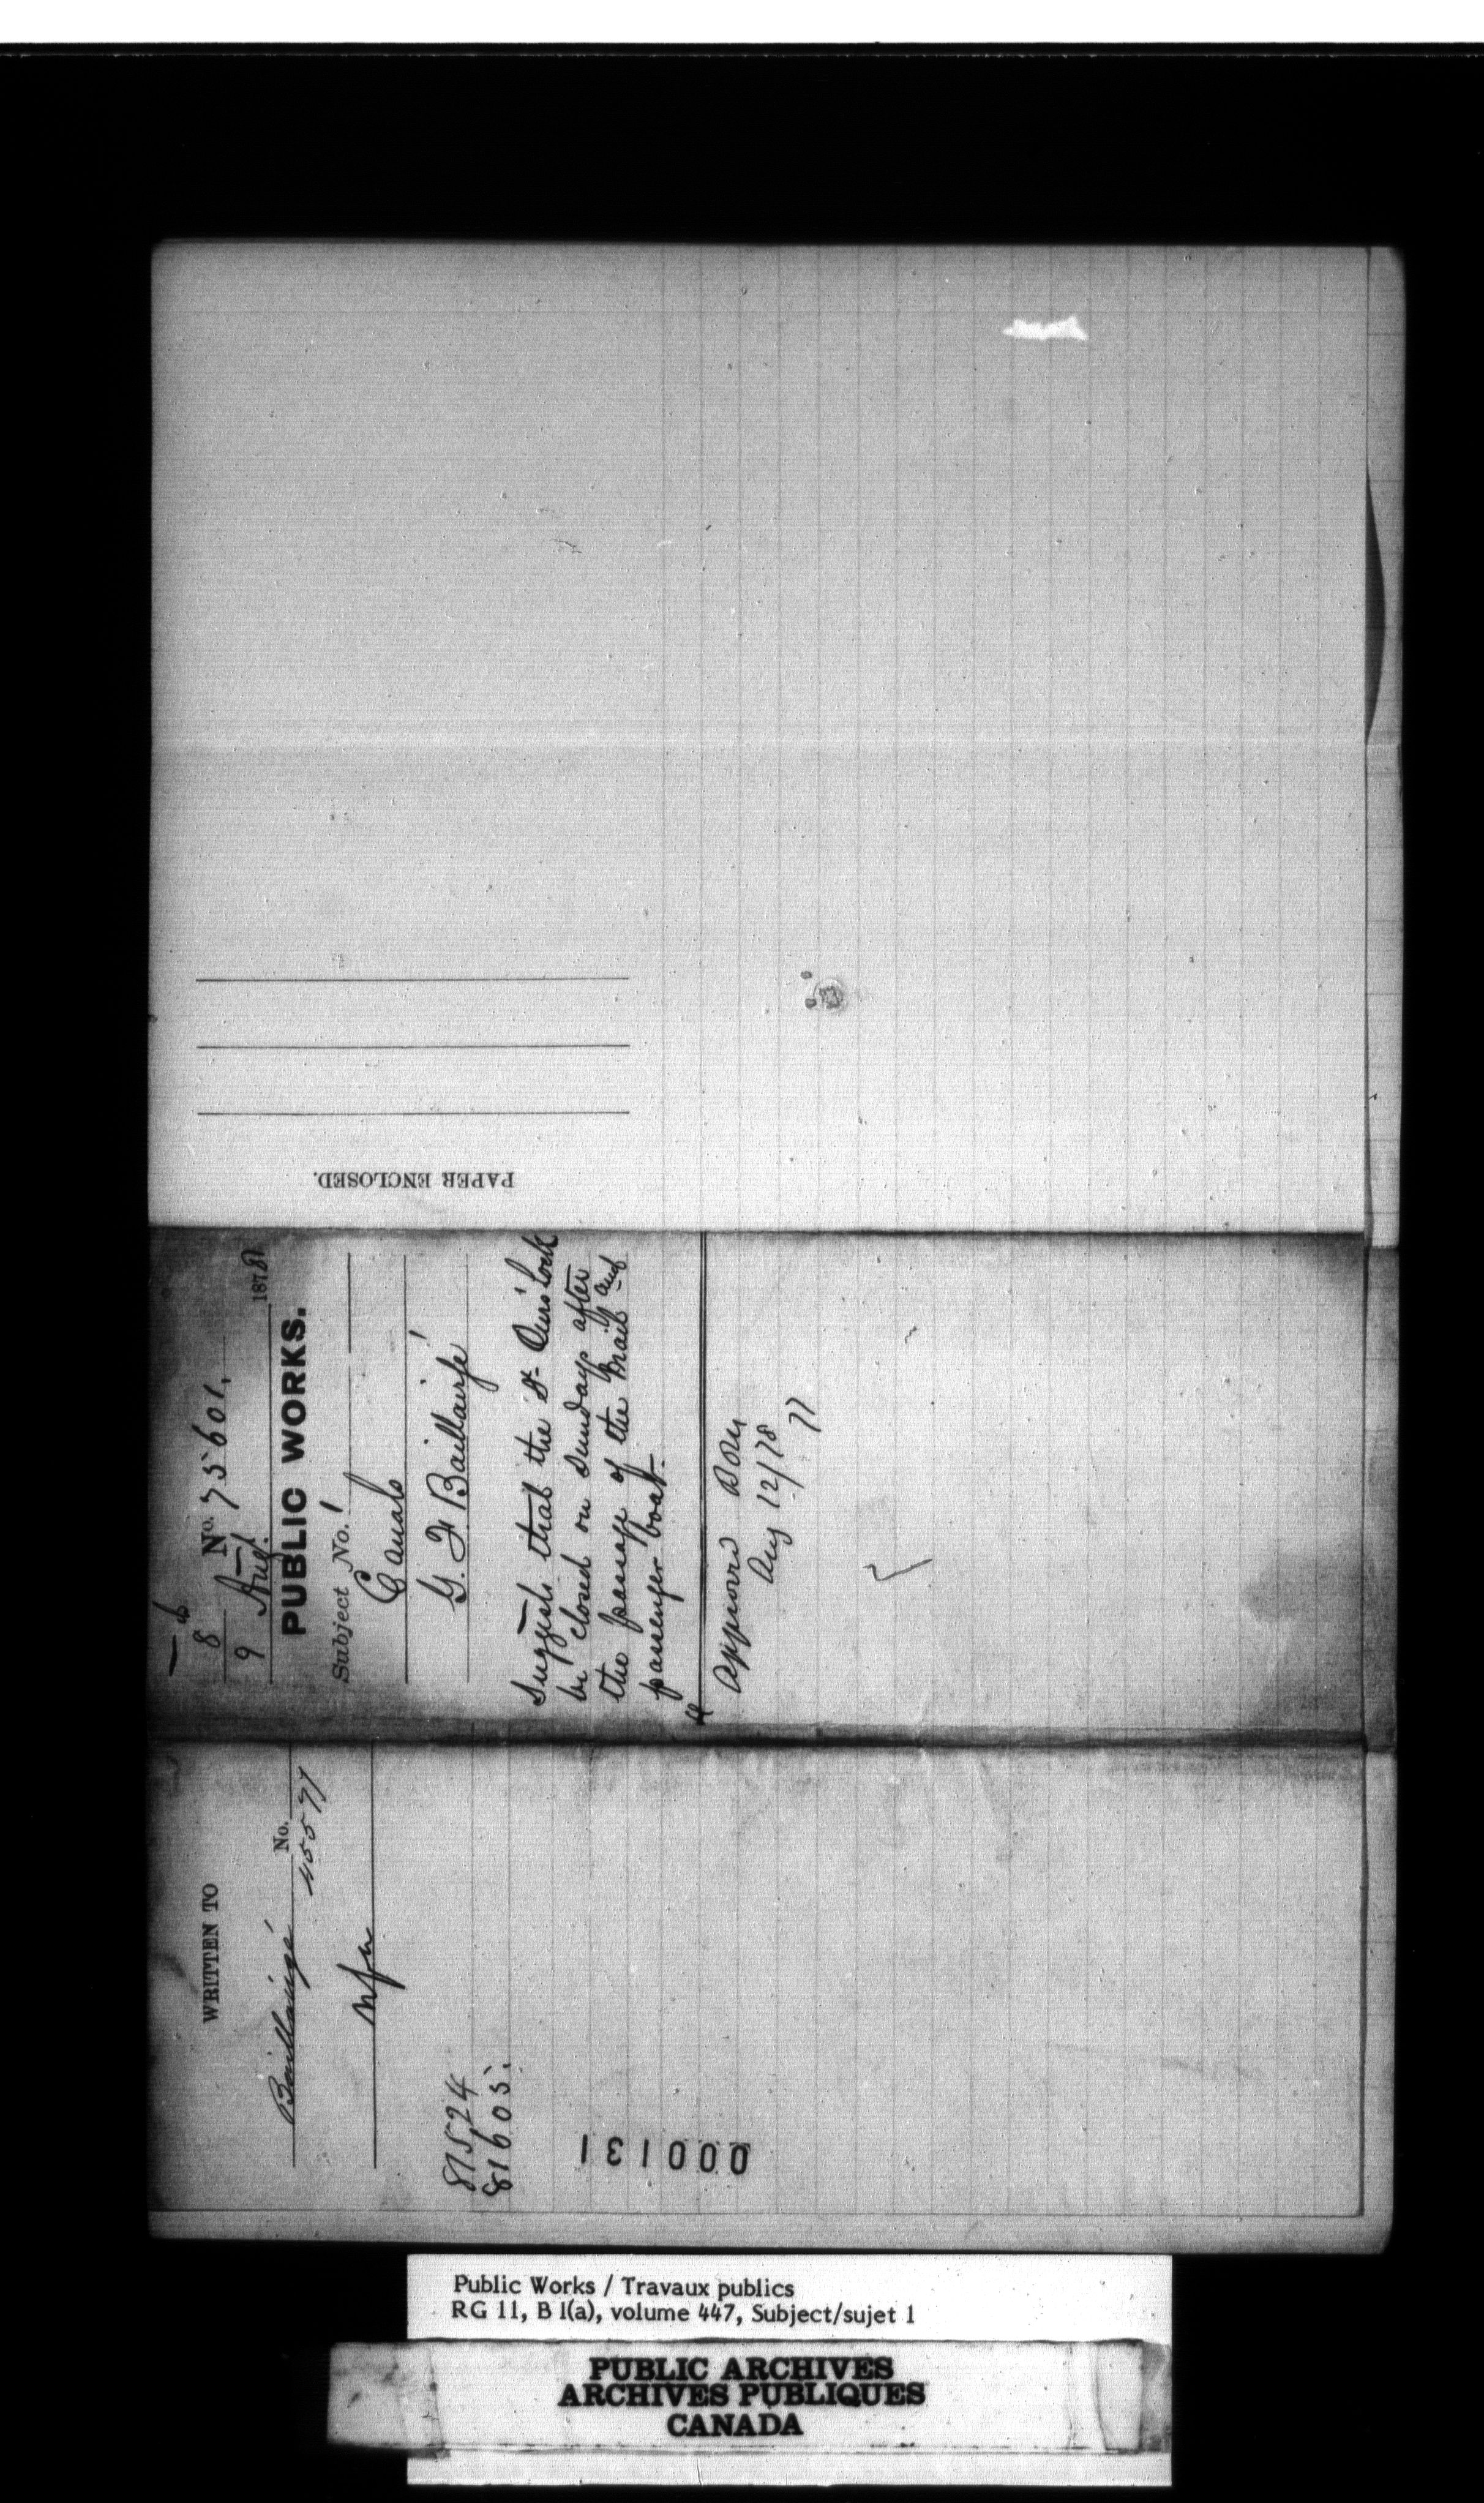 PAPER ENCLOSED.
8 No. 75601.
9 Augt. 1878
PUBLIC WORKS.
Subject No. 1
Canals
G. F. Baillairgé
Suggests that the St. Ours Lock
be closed on Sundays after
the passage of the Mail and
passenger boat.
Approved
Aug 12/78
WRITTEN TO
No.
Baillairgé
81524
81605.
000131
Public Works / Travaux publics
RG 11, B 1(a), volume 447, Subject/sujet 1
PUBLIC ARCHIVES
ARCHIVES PUBLIQUES
CANADA